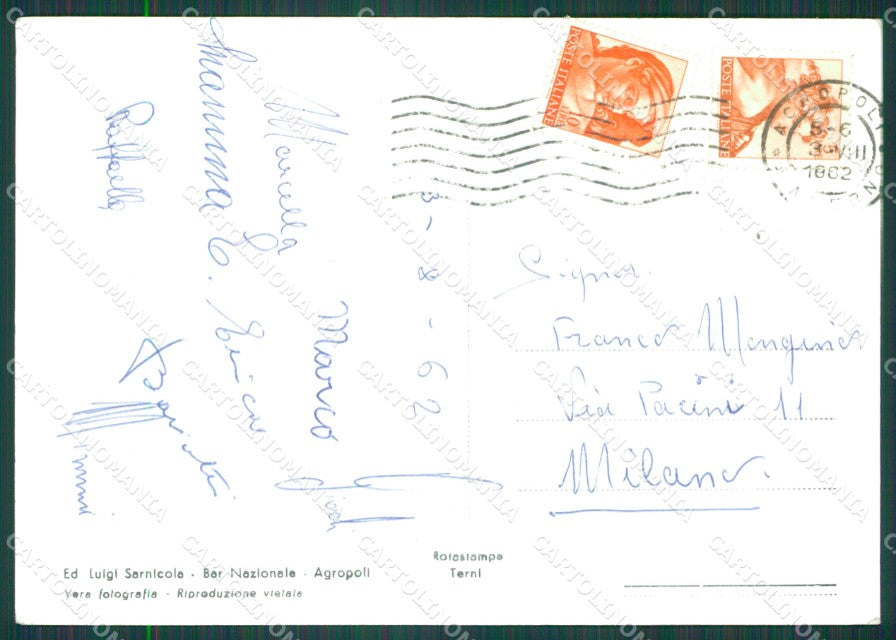 Marcella
Mamma E. Enrico
Raffaella
Marco
3-8-62
POSTE ITALIANE
POSTE ITALIANE
AGROPOLI
5-6
3 VIII
1962
Signor
Franco Mangiarotti
Via Pacini 11
Milano.
Rotostampa
Terni
Ed Luigi Sarnicola - Bar Nazionale - Agropoli
Vera fotografia - Riproduzione vietata
CARTOLINOMANIA